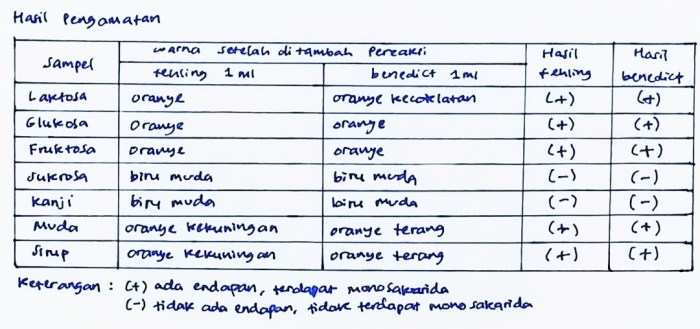 Hasil Pengamatan
Sampel | warna setelah ditambah Pereaksi | Hasil fehling | Hasil benedict
fehling 1 ml | benedict 1 ml
Laktosa | oranye | oranye kecoklatan | (+) | (+)
Glukosa | oranye | oranye | (+) | (+)
Fruktosa | oranye | oranye | (+) | (+)
sukrosa | biru muda | biru muda | (-) | (-)
Kanji | biru muda | biru muda | (-) | (-)
Muda | oranye kekuningan | oranye terang | (+) | (+)
Sirup | oranye kekuningan | oranye terang | (+) | (+)
Keterangan : (+) ada endapan, terdapat monosakarida
(-) tidak ada endapan, tidak terdapat monosakarida